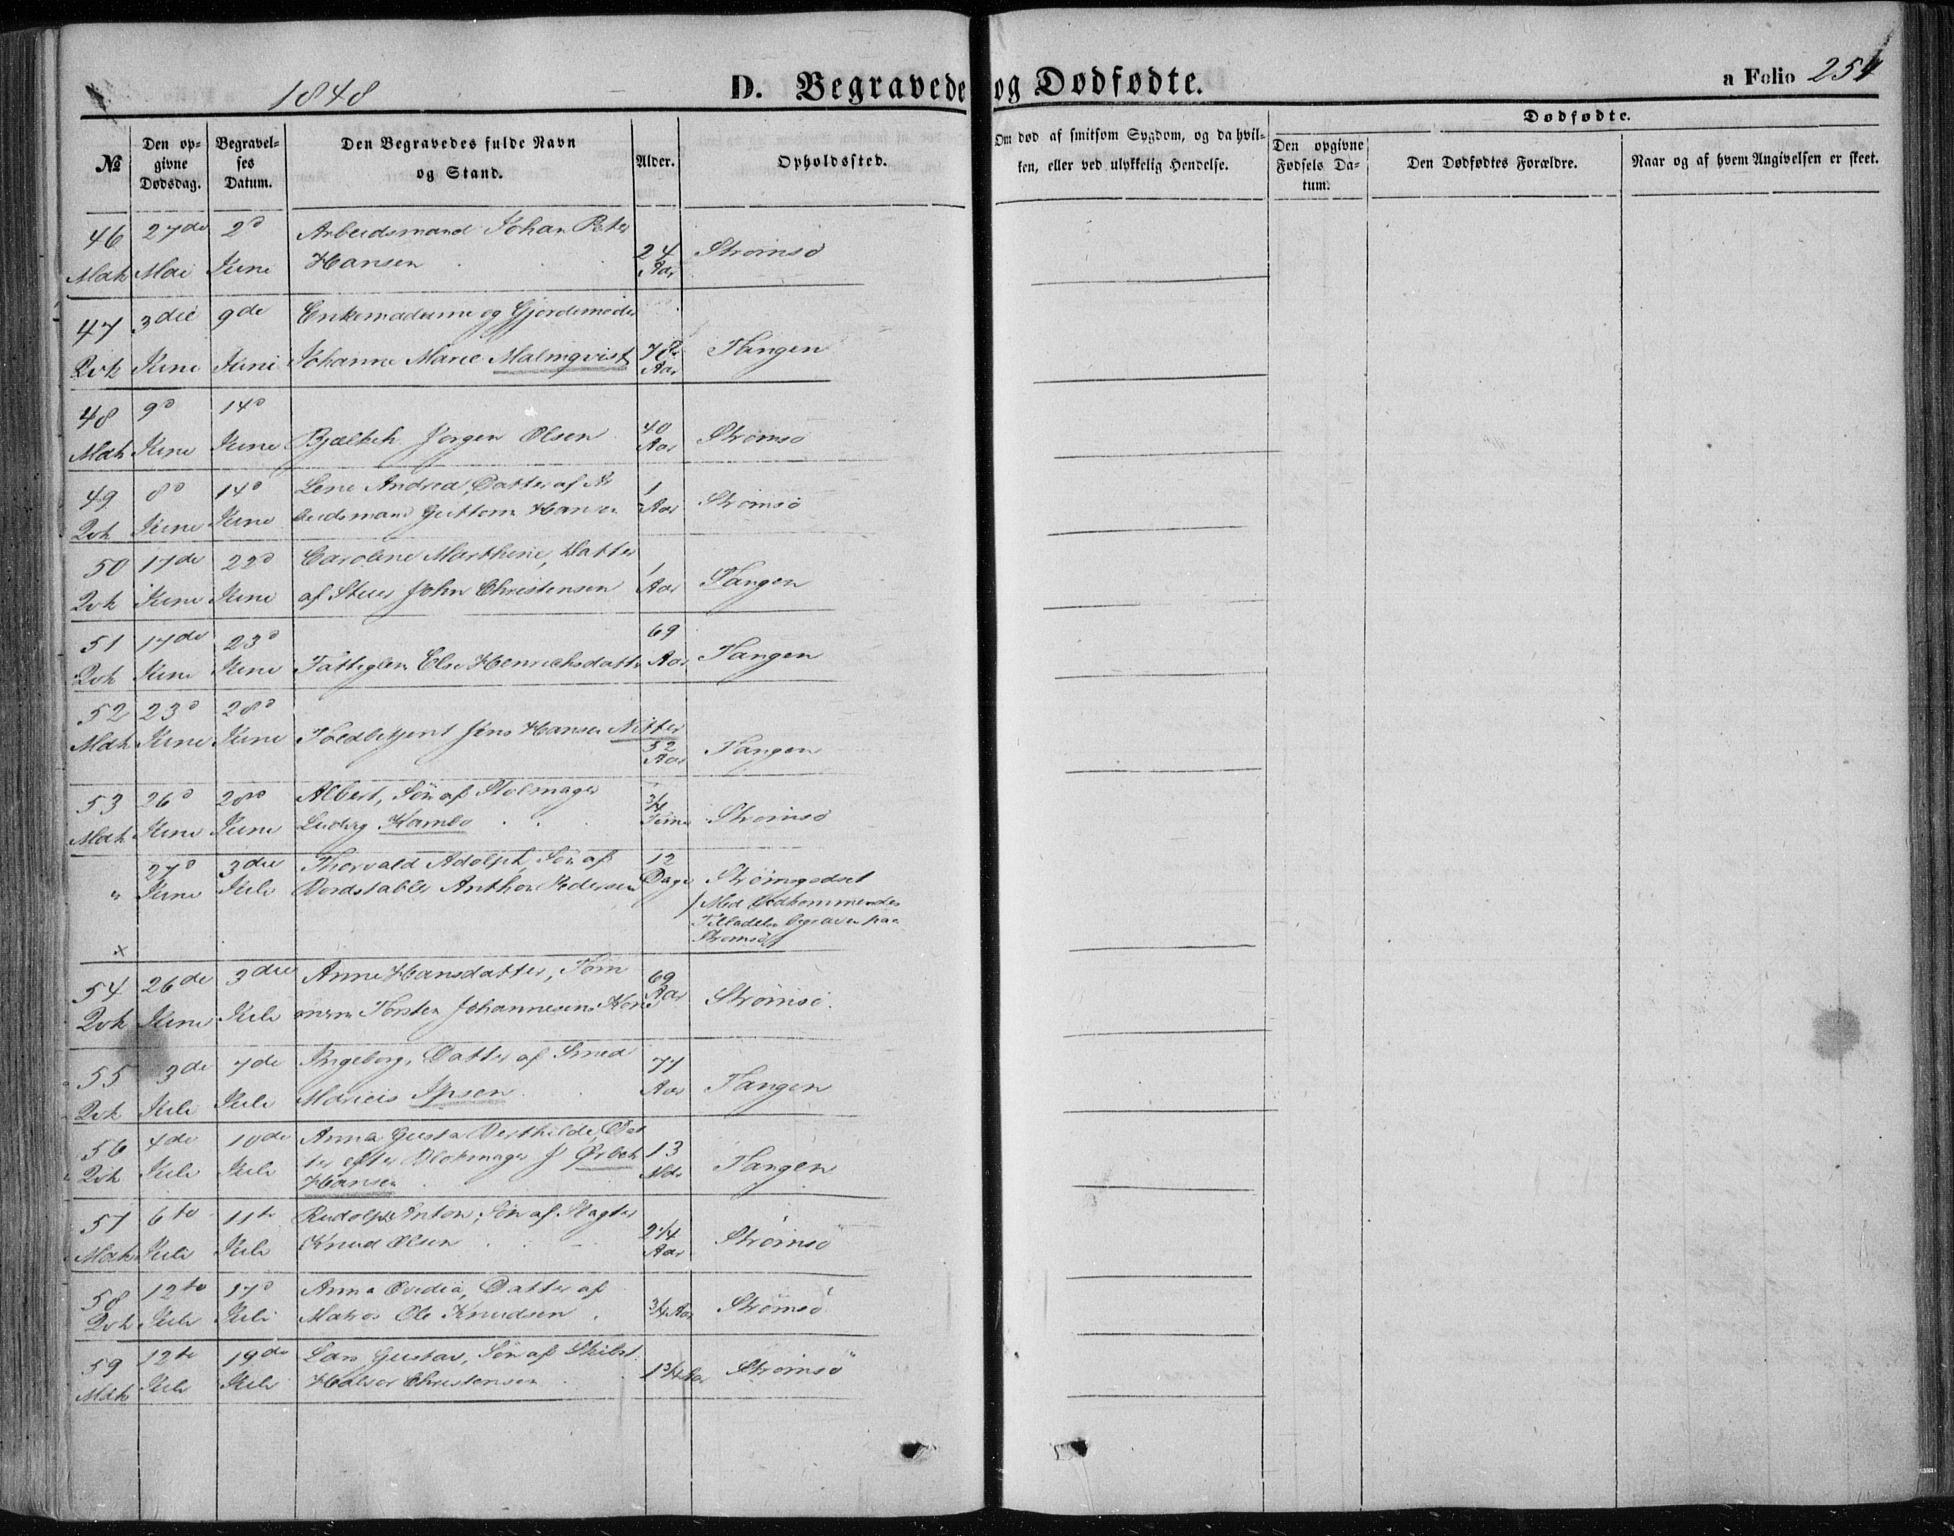 1848
D. Begravede og Dødfødte.
a Folio 254
№
Den opgivne Dødsdag.
Begravelses Datum.
Den Begravedes fulde Navn og Stand.
Alder.
Opholdssted.
Om død af smitsom Sygdom, og da hvilken, eller ved ulykkelig Hendelse.
Dødfødte.
Den opgivne Fødsels Datum.
Den Dødfødtes Forældre.
Naar og af hvem Angivelsen er skeet.
46 27de 2d Arbeidsmand Johan Peter
Mdk Mai Juni Hansen 24 Aar Strømsø
47 3die 9de Enkemadame og Gjordemoder
Qvk Juni Juni Johanne Marie Malmqvist Aar Tangen
48 9d 14d
Mdk Juni Juni Jørgen Olsen 40 Aar Strømsø
49 8d 14d Lene Andrea, Datter af Ar
Qvk Juni Juni beidsmand Guttorm Hansen 1 Aar Strømsø
50 17de 22d Caroline Marthine, Datter
Qvk Juni Juni af Stuer John Christensen 1 Aar Tangen
51 17de 23d
Qvk Juni Juni Fattiglem Else Henrichsdatter 69 Aar Tangen
52 23d 28d
Mdk Juni Juni Toldbetjent Jens Hansen Nitter 52 Aar Tangen
53 26d 28de Albert, Søn af Stolmager
Mdk Juni Juni Ludvig Kambo 3/4 Strømsø
27d 3die Thorvald Adolph, Søn af 12
" Juni Juli Bordstabler Anthon Pedersen Dage Strømgodset
/Med Vedkommendes
Tilladelse begraven paa
Strømsø/
x
54 26de 3die Anne Hansdatter, Tøm
Qvk Juni Juli merm Torsten Johannesens Kone 69 Aar Strømsø.
55 3de 7de Ingeborg, Datter af Smed
Qvk Juli Juli Marius Ipsen 77 Aar Tangen
56 4de 10de Anna Gusta Berthilde, Dat
Qvk Juli Juli ter efter Blokmager J Ørbek 13 Tangen
Hansen
57 6te 11te Rudolph Anton, Søn af Slagter
Mdk Juli Juli Knud Olsen 2 1/4 Aar Strømsø
58 12te 17d Anna Ovedia, Datter af
Qvk Juli Juli Matros Ole Knudsen 3/4 Aar Strømsø
59 12te 19de Lars Gustav, Søn af Skibst.
Mdk Juli Juli Halvor Christensen 1 3/4 Aar Strømsø